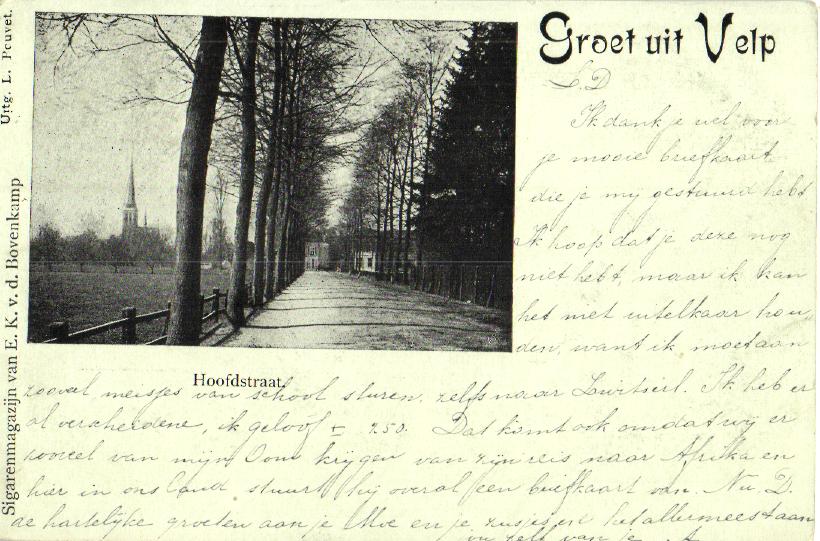 Groet uit Velp
L. D
Ik dank je wel voor
je mooie briefkaart
die je mij gestuurd hebt
Ik hoop dat je deze nog
niet hebt, maar ik kan
het niet uitelkaar hou,
den, want ik moet aan
zooveel meisjes van school sturen, zelfs naar Zwitserl. Ik heb er
al verscheidene, ik geloof ± 250. Dat komt ook omdat wij er
zooveel van mijn Oom krijgen van zijn reis naar Afrika en
hier in ons land stuurt hij overal een briefkaart van. Nu D.
de hartelijke groeten aan je Moe en je zusjes en het allermeest aan
zelf van je
Hoofdstraat.
Uitg. L. Peuvet.
Sigarenmagazijn van E. K. v. d. Bovenkamp